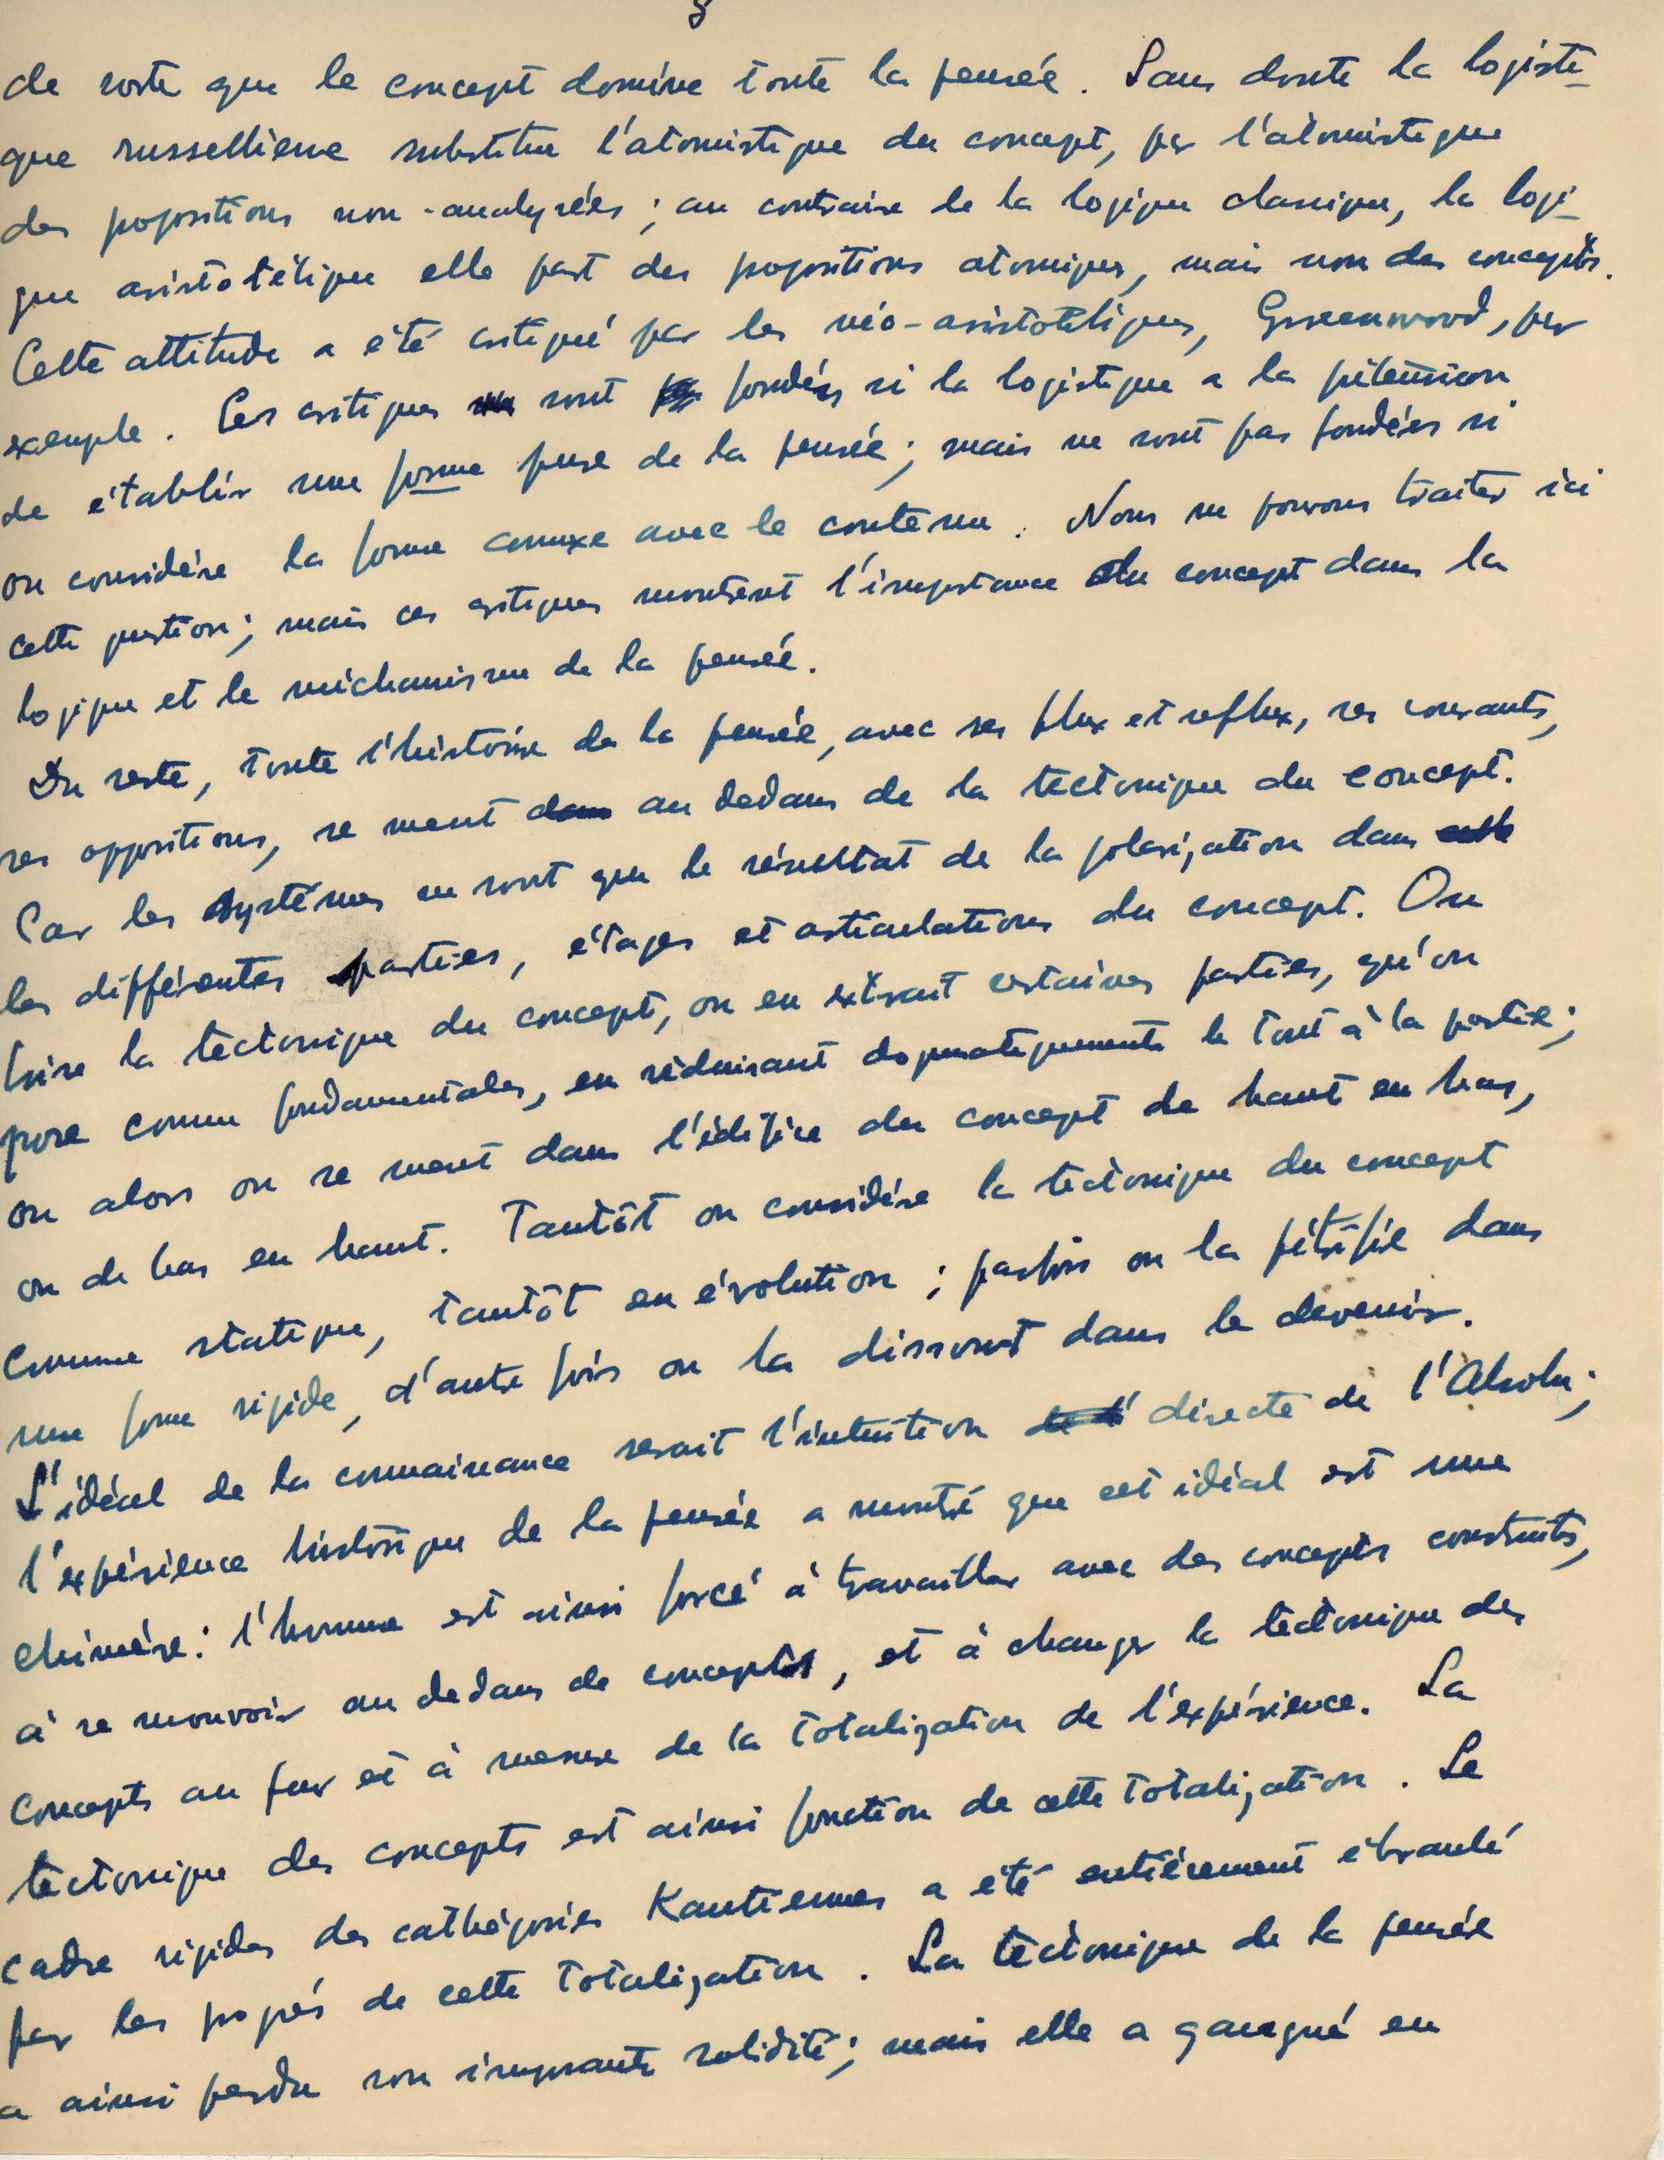 de sorte que le concept domine toute la pensée. Sans doute la logisti-
que russellienne substitue l'atomistique du concept, par l'atomistique
des propositions non-analysées; au contraire de la logique classique, la logi-
que aristotélique elle part des propositions atomiques, mais non des concepts.
Cette attitude a été critiqué par les néo-aristotéliques, Greenwood, par
exemple. Ces critiques sont fondées si la logistique a la prétension
de établir une forme pure de la pensée; mais ne sont pas fondées si
on considère la forme connexe avec le contenu. Nous ne pouvons traiter ici
cette question; mais ces critiques montrent l'importance du concept dans la
logique et le méchanisme de la pensée.
Du reste, toute l'histoire de la pensée, avec ses flux et reflux, ses courants,
ses oppositions, se meut au dedans de la tectonique du concept.
Car les systèmes ne sont que le résultat de la polarization dans
les différentes parties, étages et articulations du concept. On
brise la tectonique du concept, on en extrait certaines parties, qu'on
pose comme fondamentales, en réduisant dogmatiquemente le tout à la partie;
ou alors on se meut dans l'édifice du concept de haut en bas,
ou de bas en haut. Tantôt on considère la tectonique du concept
comme statique, tantôt en évolution; parfois on la pétrifie dans
une forme rigide, d'autre fois on la dissout dans le devenir.
L'idéal de la connaissance serait l'intuition directe de l'Absolu;
l'expérience historique de la pensée a montré que cet idéal est une
chimère: l'homme est ainsi forcé à travailler avec des concepts construits,
à se mouvoir au dedans de concepts, et à changer la tectonique des
concepts au fur et à mesure de la totalization de l'expérience. La
tectonique des concepts est ainsi fonction de cette totalization. Le
cadre rigides des cathégories Kantiennes a été entièrement ébranlé
par les progrés de cette totalization. La tectonique de la pensée
a ainsi perdu son imposante solidité; mais elle a gangné en